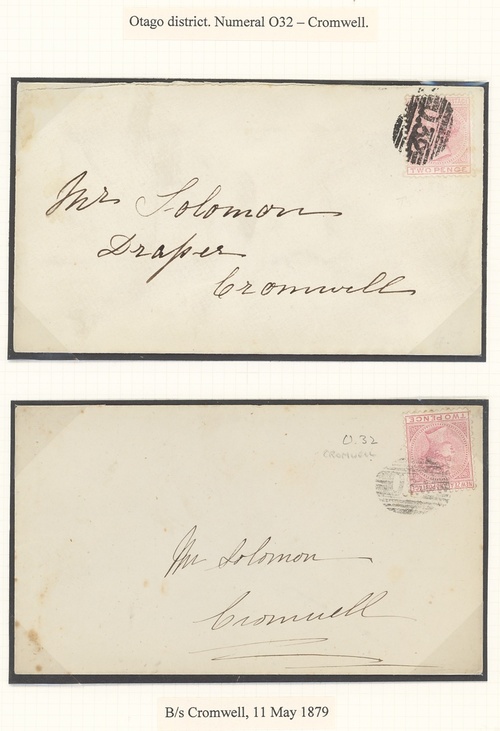 Otago district. Numeral O32 – Cromwell.
O32
TWO PENCE
Mr Solomon
Draper
Cromwell
TWO PENCE
O.32
CROMWELL
Mr Solomon
Cromwell
B/s Cromwell, 11 May 1879